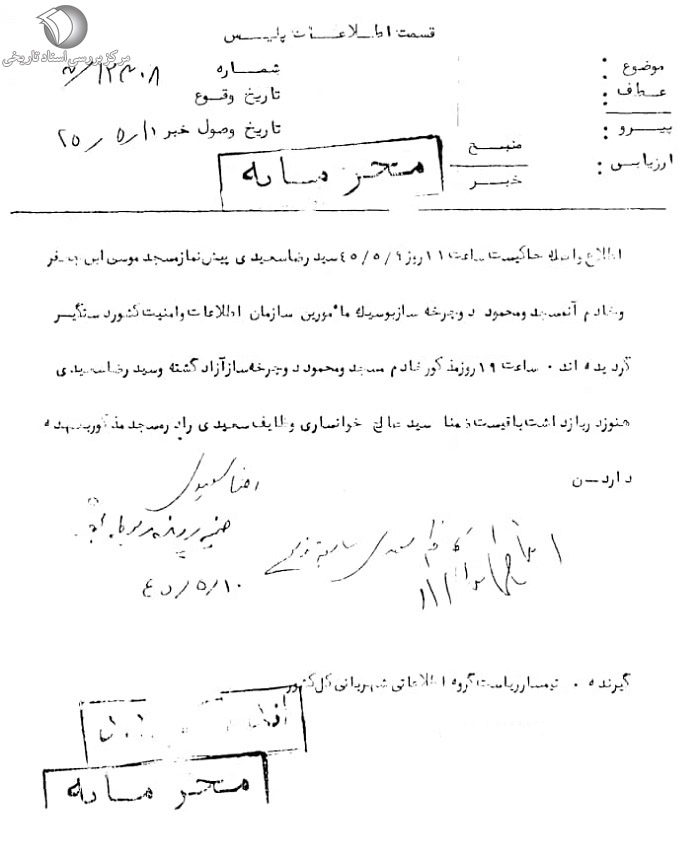 مرکز بررسی اسناد تاریخی
قسمت اطلاعات پلیس
موضوع :
عطف :
پیرو :
ارزیابی :
منبع
خبر
شماره
تاریخ وقوع
تاریخ وصول خبر
محرمانه
اطلاع واصله حاکیست ساعت ۱۱ روز ۴۵/۵/۹ سید رضا سعیدی پیش نماز مسجد موسی ابن جعفر
وخادم آنمسجد ومحمود دوچرخه ساز بوسیله مأمورین سازمان اطلاعات وامنیت کشور دستگیر
گردیده اند ۰ ساعت ۱۹ روز مذکور خادم مسجد ومحمود دوچرخه ساز آزاد گشته وسید رضا سعیدی
هنوز در بازداشت باقیست ضمنا سید صالح خوانساری وظایف سعیدی را در مسجد مذکور بعهده
دارد-ن
رضا سعیدی
۴۵/۵/۱۰
گیرنده ۰ تیمسار ریاست گروه اطلاعاتی شهربانی کل کشور
محرمانه